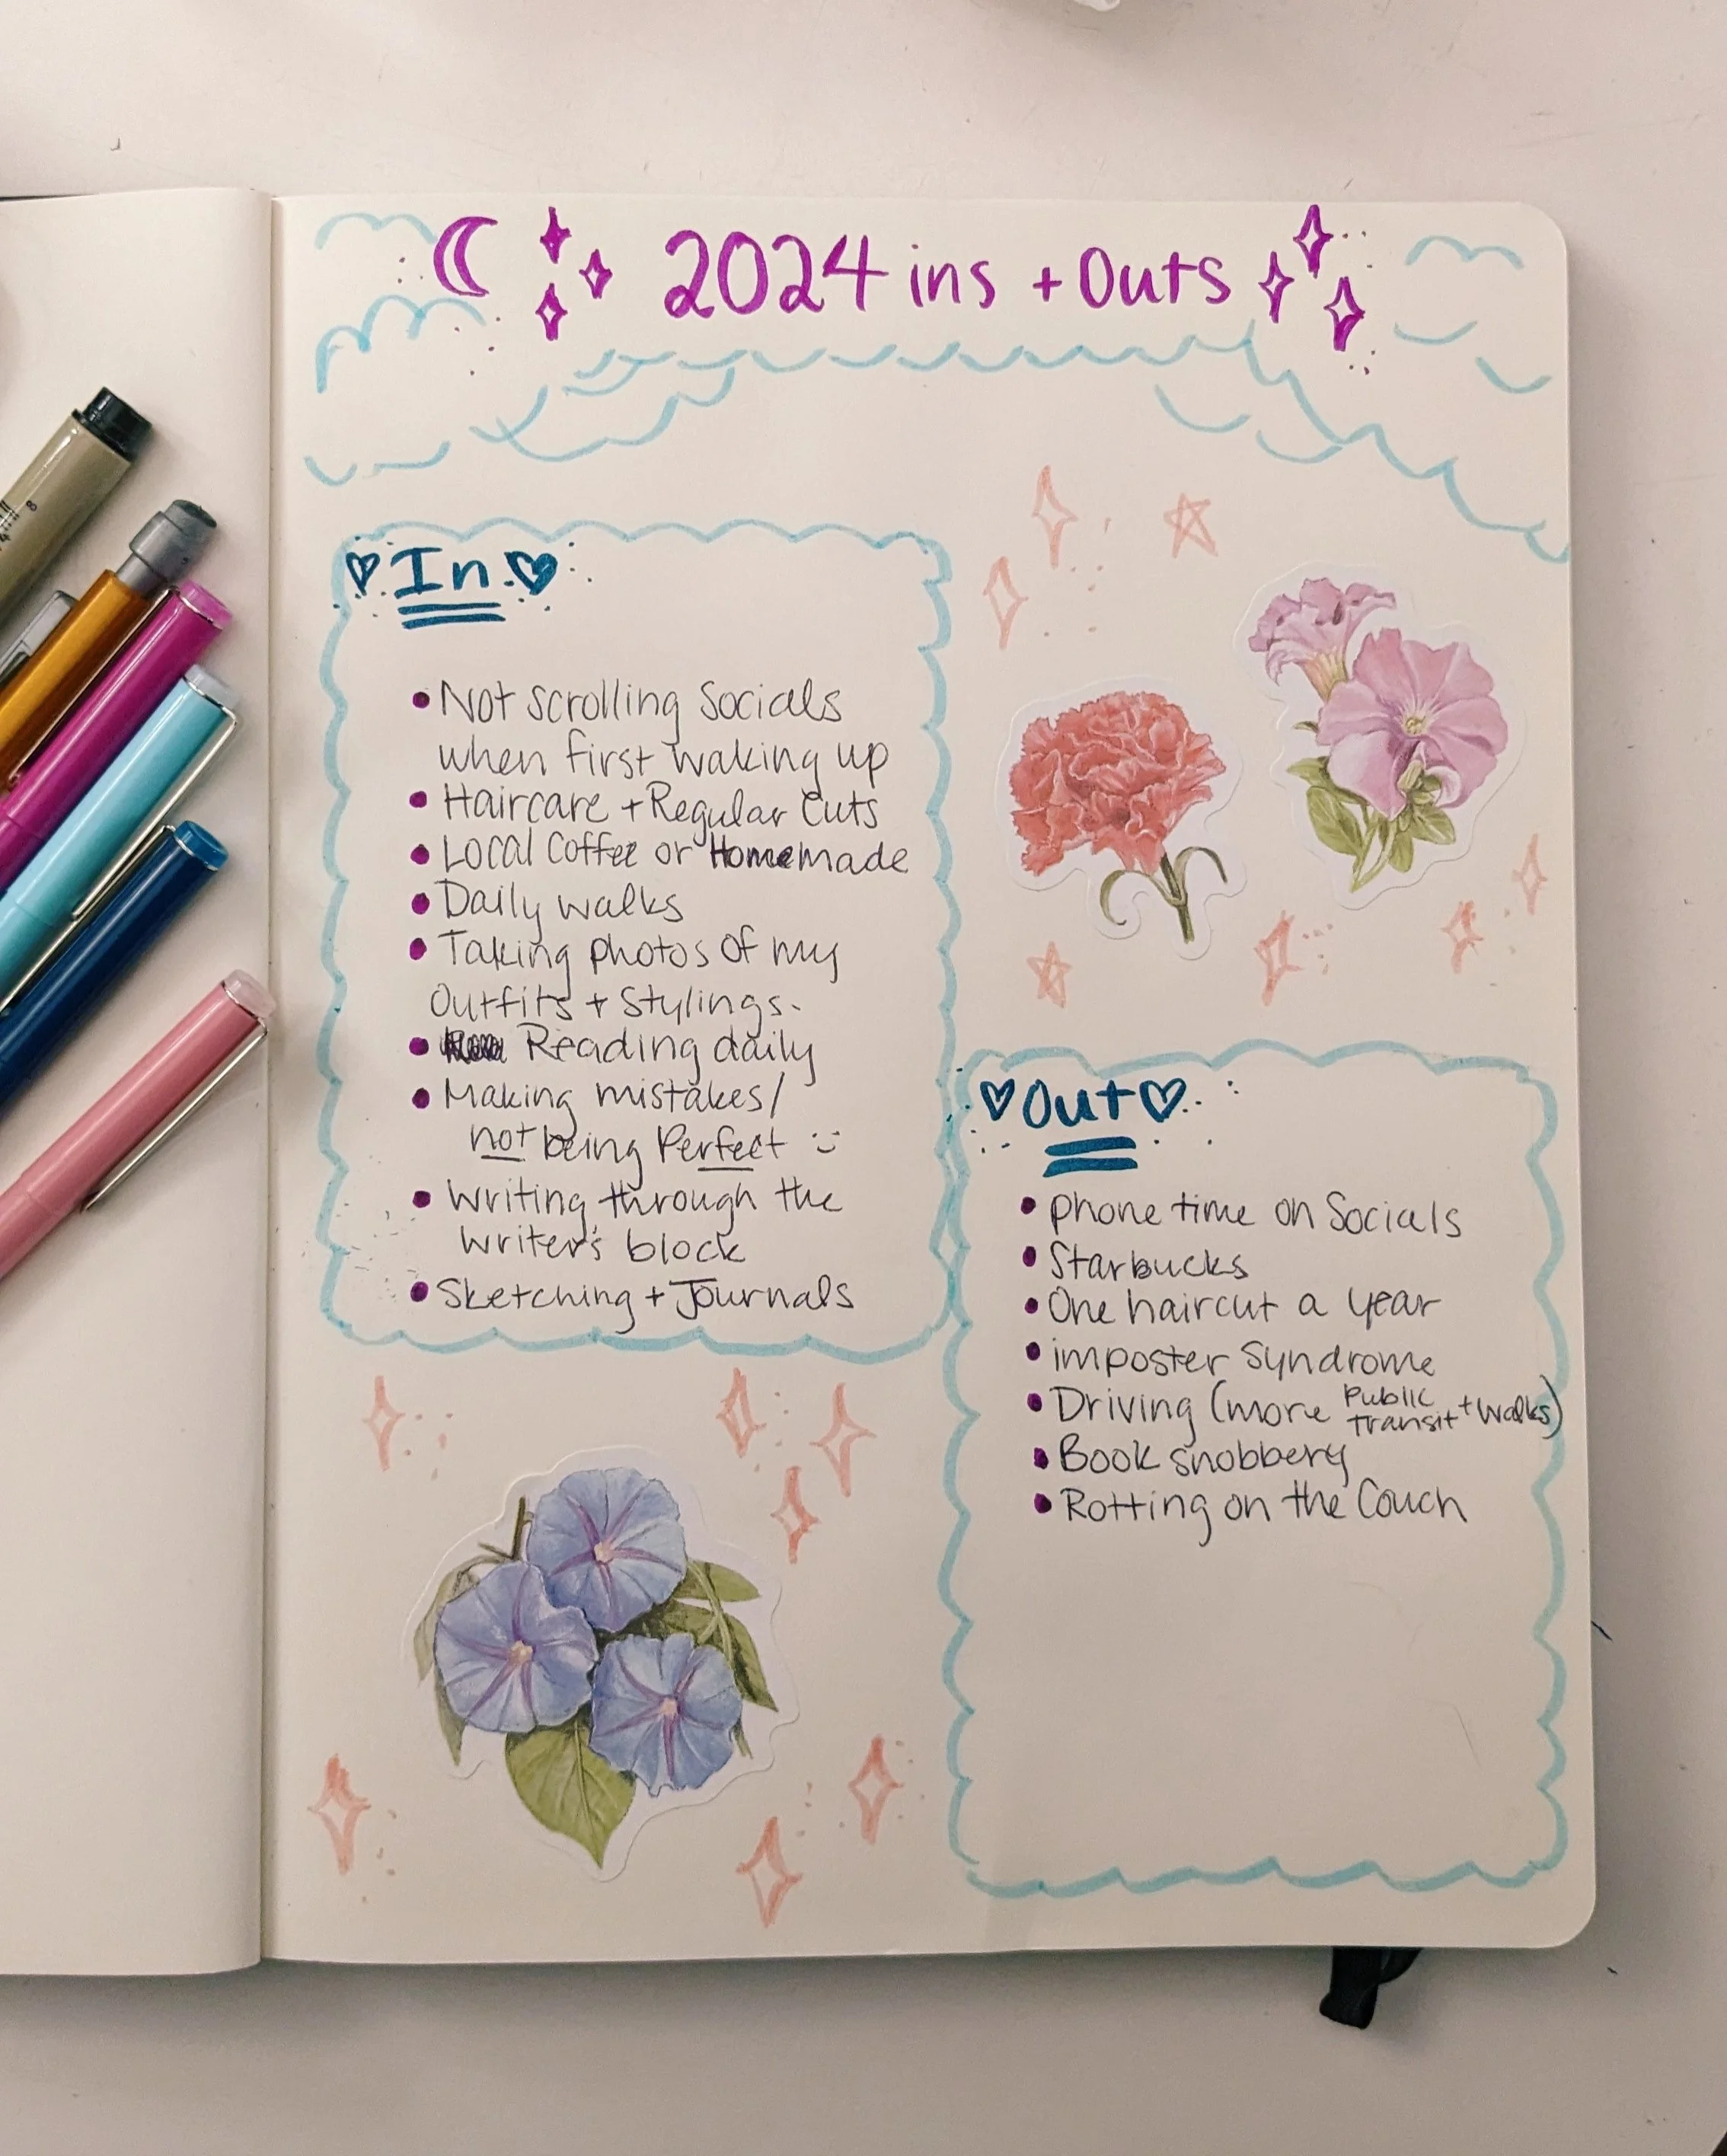 2024 ins + Outs
In
• Not scrolling Socials
when first waking up
• Haircare + Regular Cuts
• Local Coffee or Homemade
• Daily walks
• Taking photos of my
Outfits + Stylings.
• Reading daily
• Making mistakes/
not being Perfect
• Writing through the
writer's block
• Sketching + Journals
Out
• phone time on Socials
• Starbucks
• One haircut a year
• imposter Syndrome
• Driving (more Public Transit + walks)
• Book snobbery
• Rotting on the Couch
8